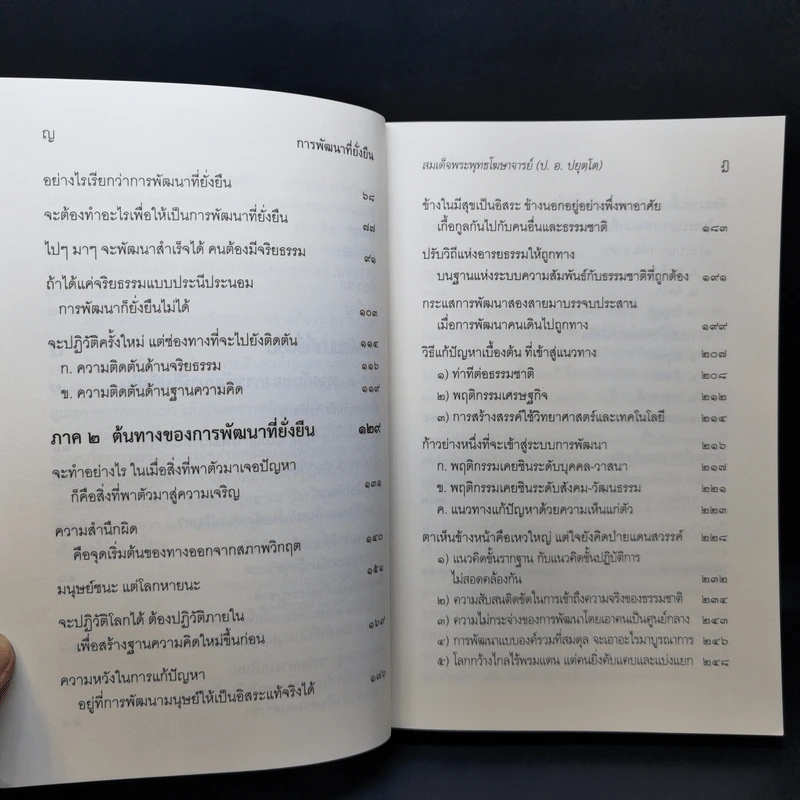 ญ
การพัฒนาที่ยั่งยืน
อย่างไรเรียกว่าการพัฒนาที่ยั่งยืน ๖๘
จะต้องทำอะไรเพื่อให้เป็นการพัฒนาที่ยั่งยืน ๗๗
ไปๆ มาๆ จะพัฒนาสำเร็จได้ คนต้องมีจริยธรรม ๙๑
ถ้าได้แค่จริยธรรมแบบประนีประนอม
การพัฒนาก็ยั่งยืนไม่ได้ ๑๐๓
จะปฏิวัติครั้งใหม่ แต่ช่องทางที่จะไปยังติดตัน ๑๑๔
ก. ความติดตันด้านจริยธรรม ๑๑๖
ข. ความติดตันด้านฐานความคิด ๑๑๙
ภาค ๒ ต้นทางของการพัฒนาที่ยั่งยืน ๑๒๙
จะทำอย่างไร ในเมื่อสิ่งที่พาตัวมาเจอปัญหา
ก็คือสิ่งที่พาตัวมาสู่ความเจริญ ๑๓๑
ความสำนึกผิด
คือจุดเริ่มต้นของทางออกจากสภาพวิกฤต ๑๔๐
มนุษย์ชนะ แต่โลกหายนะ ๑๕๑
จะปฏิวัติโลกได้ ต้องปฏิวัติภายใน
เพื่อสร้างฐานความคิดใหม่ขึ้นก่อน ๑๖๙
ความหวังในการแก้ปัญหา
อยู่ที่การพัฒนามนุษย์ให้เป็นอิสระแท้จริงได้ ๑๗๖
สมเด็จพระพุทธโฆษาจารย์ (ป. อ. ปยุตฺโต)
ฎ
ข้างในมีสุขเป็นอิสระ ข้างนอกอยู่อย่างพึ่งพาอาศัย
เกื้อกูลกันไปกับคนอื่นและธรรมชาติ ๑๘๓
ปรับวิถีแห่งอารยธรรมให้ถูกทาง
บนฐานแห่งระบบความสัมพันธ์กับธรรมชาติที่ถูกต้อง ๑๙๑
กระแสการพัฒนาสองสายมาบรรจบประสาน
เมื่อการพัฒนาคนเดินไปถูกทาง ๑๙๙
วิธีแก้ปัญหาเบื้องต้น ที่เข้าสู่แนวทาง ๒๐๗
๑) ท่าทีต่อธรรมชาติ ๒๐๘
๒) พฤติกรรมเศรษฐกิจ ๒๑๒
๓) การสร้างสรรค์ใช้วิทยาศาสตร์และเทคโนโลยี ๒๑๔
ก้าวย่างหนึ่งที่จะเข้าสู่ระบบการพัฒนา ๒๑๖
ก. พฤติกรรมเคยชินระดับบุคคล-วาสนา ๒๑๗
ข. พฤติกรรมเคยชินระดับสังคม-วัฒนธรรม ๒๒๑
ค. แนวทางแก้ปัญหาด้วยความเห็นแก่ตัว ๒๒๓
ตาเห็นข้างหน้าคือเหวใหญ่ แต่ใจยังคิดป่ายแดนสวรรค์ ๒๒๘
๑) แนวคิดขั้นรากฐาน กับแนวคิดขั้นปฏิบัติการ
ไม่สอดคล้องกัน ๒๓๒
๒) ความสับสนติดขัดในการเข้าถึงความจริงของธรรมชาติ ๒๓๔
๓) ความไม่กระจ่างของการพัฒนาโดยเอาคนเป็นศูนย์กลาง ๒๔๓
๔) การพัฒนาแบบองค์รวมที่สมดุล จะเอาอะไรมาบูรณาการ ๒๔๖
๕) โลกกว้างไกลไร้พรมแดน แต่คนยิ่งคับแคบและแบ่งแยก ๒๔๘